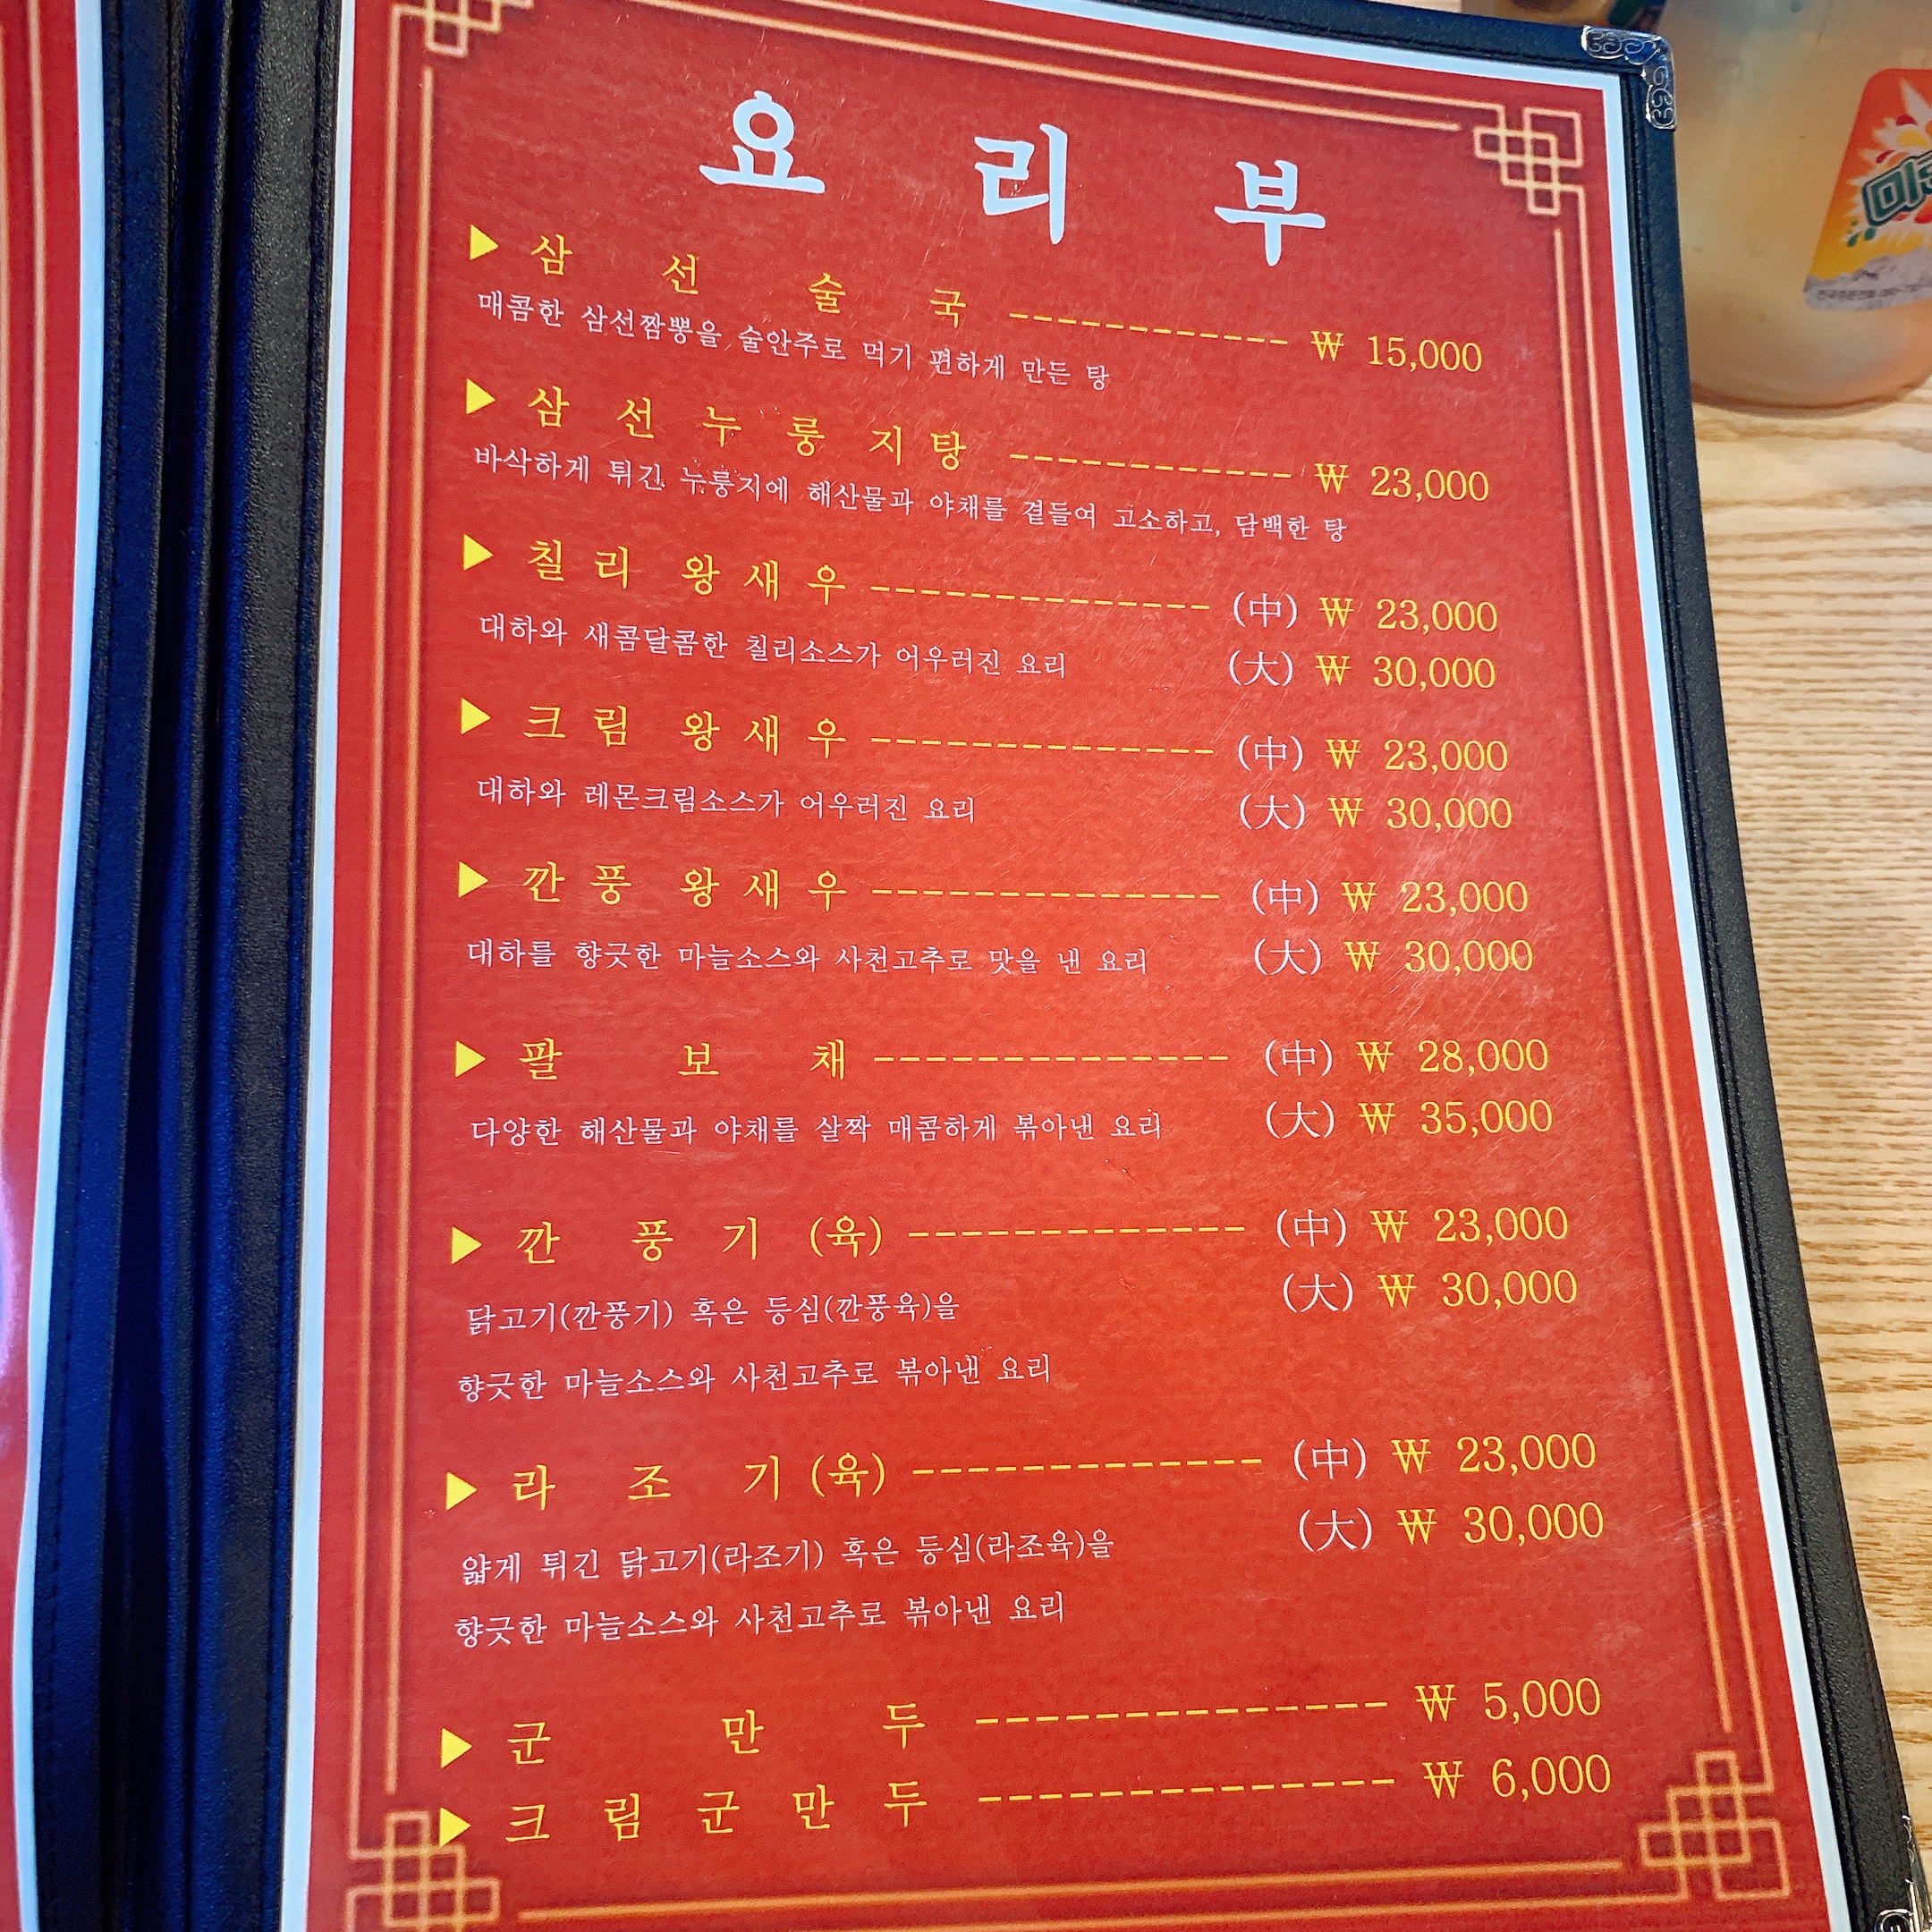 요리부
▶ 삼선술국 ------------ ₩ 15,000
매콤한 삼선짬뽕을 술안주로 먹기 편하게 만든 탕
▶ 삼선누룽지탕 ------------ ₩ 23,000
바삭하게 튀긴 누룽지에 해산물과 야채를 곁들여 고소하고, 담백한 탕
▶ 칠리 왕새우 -------------- (中) ₩ 23,000
대하와 새콤달콤한 칠리소스가 어우러진 요리 (大) ₩ 30,000
▶ 크림 왕새우 -------------- (中) ₩ 23,000
대하와 레몬크림소스가 어우러진 요리 (大) ₩ 30,000
▶ 깐풍 왕새우 -------------- (中) ₩ 23,000
대하를 향긋한 마늘소스와 사천고추로 맛을 낸 요리 (大) ₩ 30,000
▶ 팔보채 -------------- (中) ₩ 28,000
다양한 해산물과 야채를 살짝 매콤하게 볶아낸 요리 (大) ₩ 35,000
▶ 깐풍기 (육) ------------- (中) ₩ 23,000
(大) ₩ 30,000
닭고기(깐풍기) 혹은 등심(깐풍육)을
향긋한 마늘소스와 사천고추로 볶아낸 요리
▶ 라조기 (육) ------------- (中) ₩ 23,000
(大) ₩ 30,000
얇게 튀긴 닭고기(라조기) 혹은 등심(라조육)을
향긋한 마늘소스와 사천고추로 볶아낸 요리
▶ 군만두 --------------- ₩ 5,000
▶ 크림군만두 --------------- ₩ 6,000